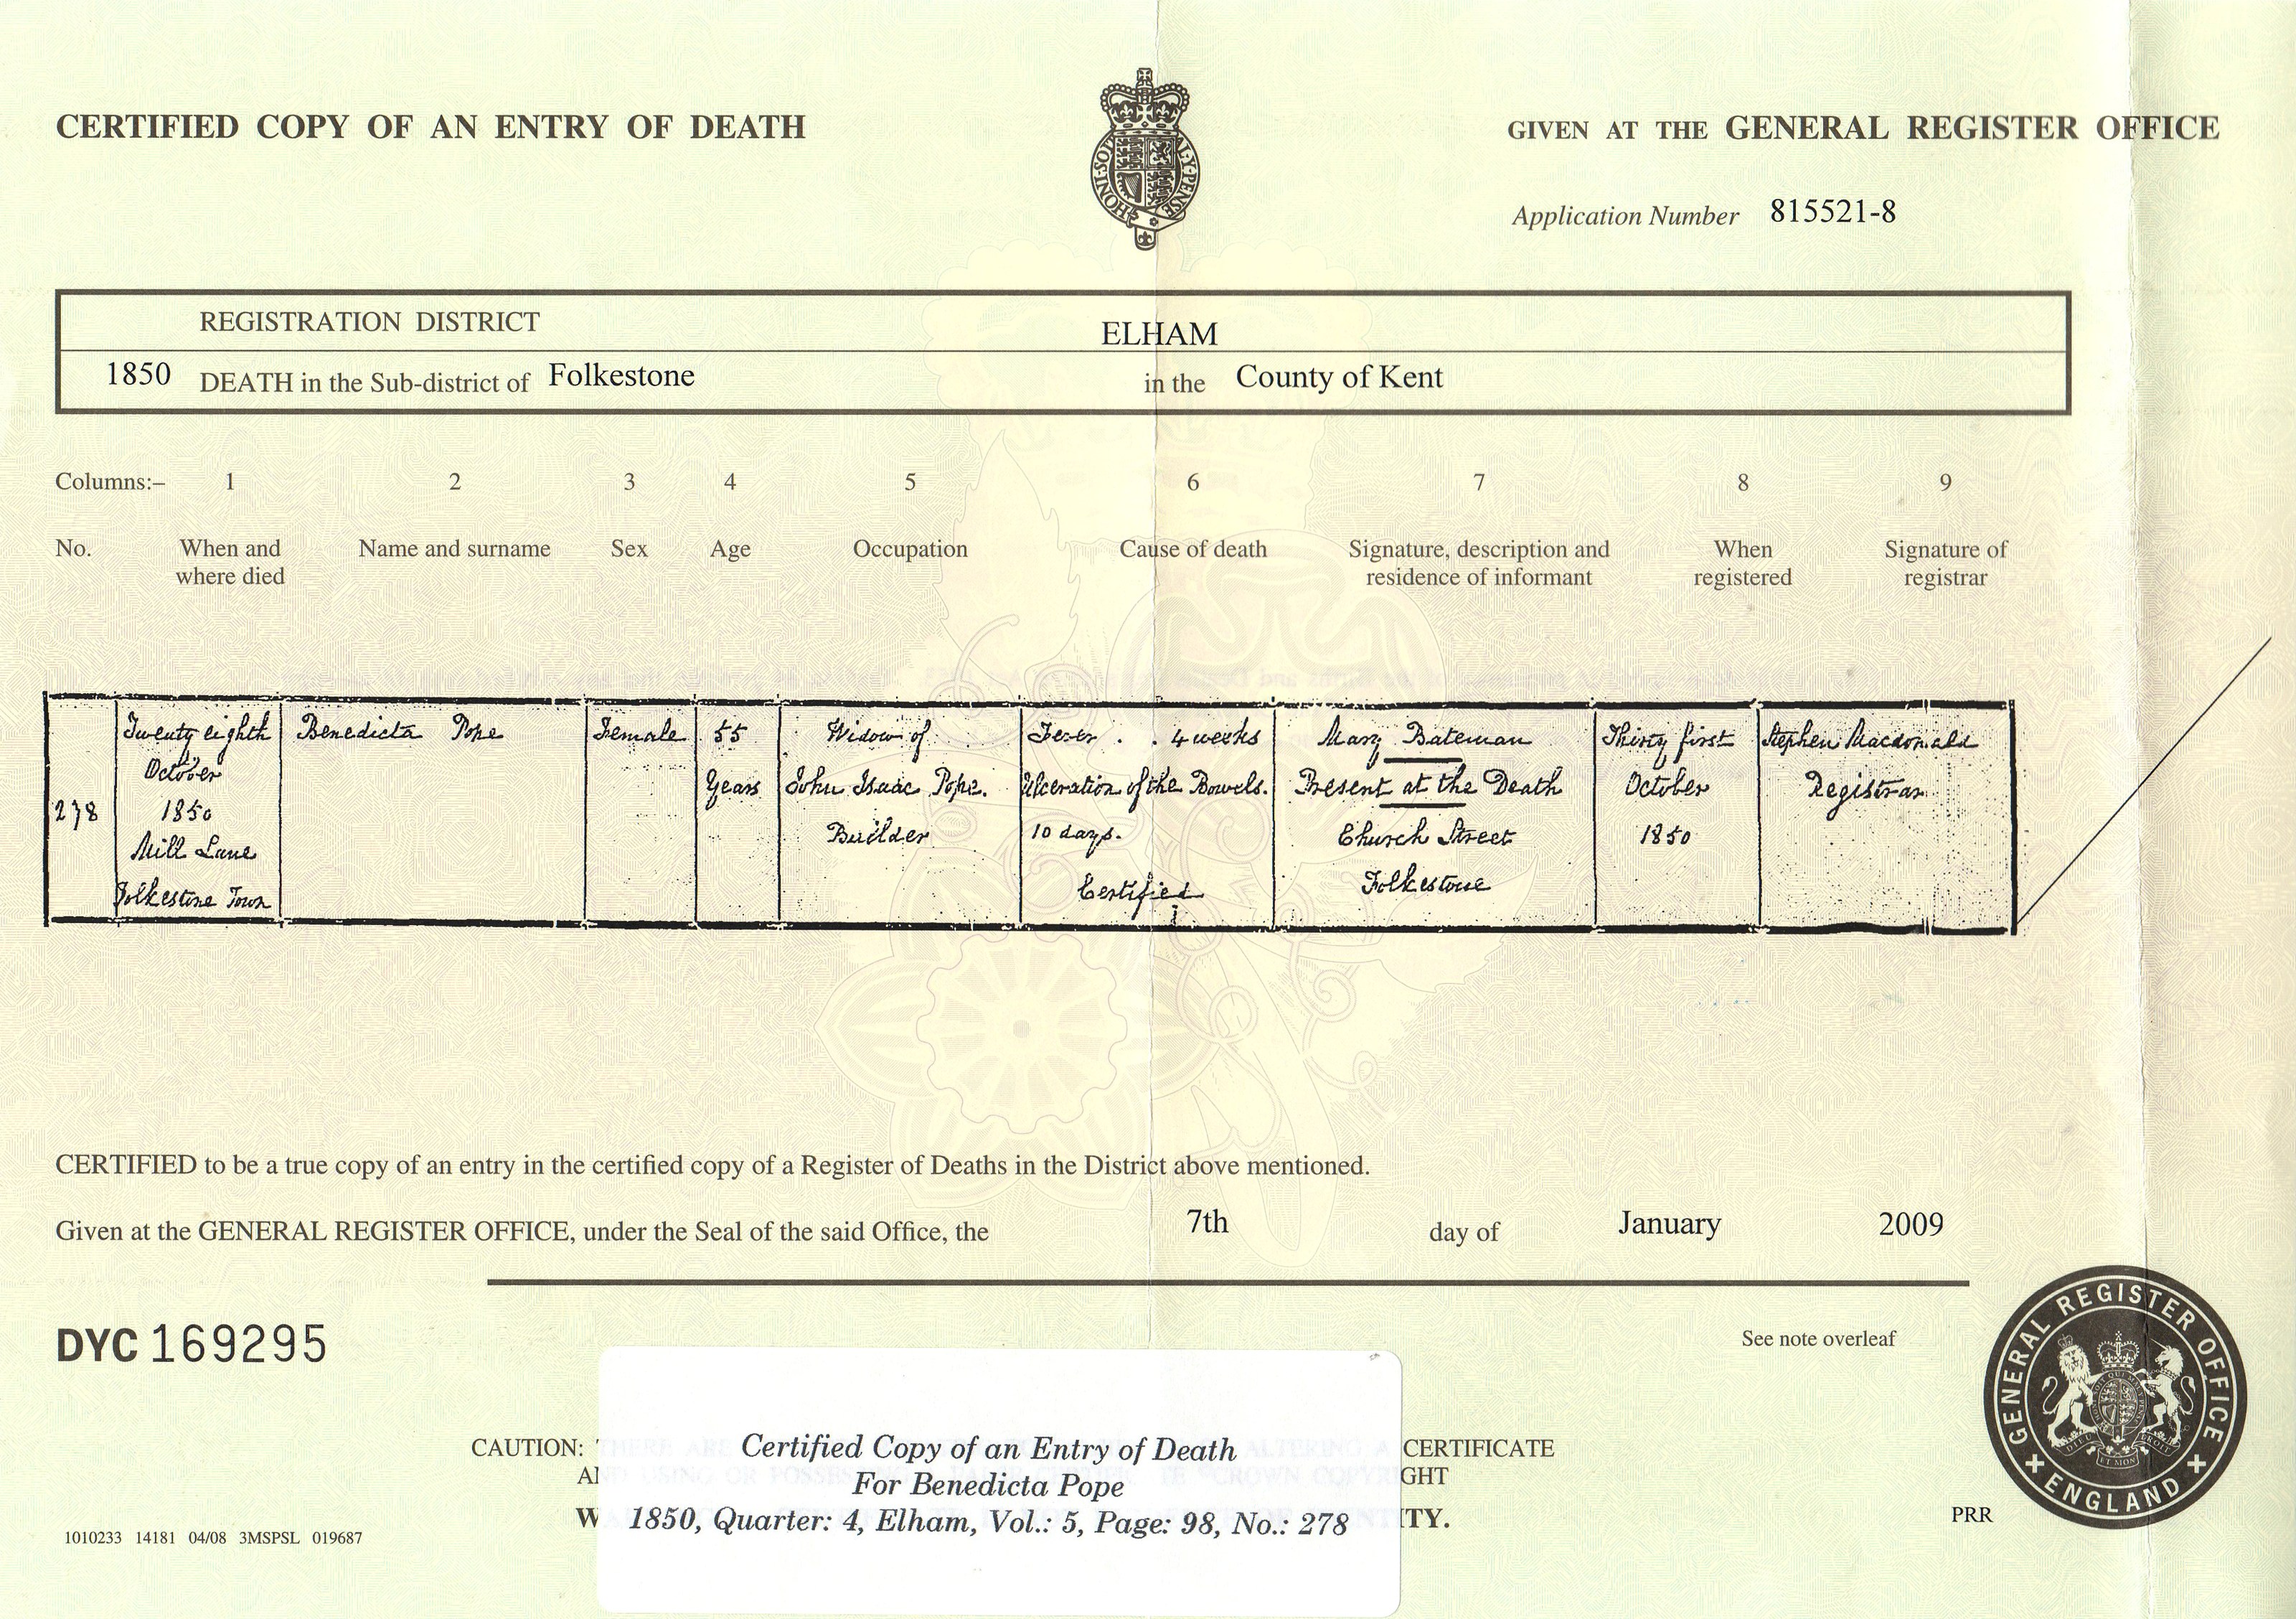 CERTIFIED COPY OF AN ENTRY OF DEATH
GIVEN AT THE GENERAL REGISTER OFFICE
HONI·SOIT Y·PENSE
Application Number 815521-8
REGISTRATION DISTRICT ELHAM
1850 DEATH in the Sub-district of Folkestone in the County of Kent
Columns:– 1 2 3 4 5 6 7 8 9
No. When and where died Name and surname Sex Age Occupation Cause of death Signature, description and residence of informant When registered Signature of registrar
278
Twenty eighth
October
1850
Mill Lane
Folkestone Town
Benedicta Pope
Female
55
Years
Widow of
John Isaac Pope.
Builder
Fever . . 4 weeks
Ulceration of the Bowels.
10 days.
Certified
Mary Bateman
Present at the Death
Church Street
Folkestone
Thirty first
October
1850
Stephen Macdonald
Registrar
CERTIFIED to be a true copy of an entry in the certified copy of a Register of Deaths in the District above mentioned.
Given at the GENERAL REGISTER OFFICE, under the Seal of the said Office, the 7th day of January 2009
DYC 169295
See note overleaf
CAUTION: THERE ARE ALTERING A CERTIFICATE
AND USING OR POSSESS CROWN COPYRIGHT
Certified Copy of an Entry of Death
For Benedicta Pope
1850, Quarter: 4, Elham, Vol.: 5, Page: 98, No.: 278
1010233 14181 04/08 3MSPSL 019687
PRR
GENERAL REGISTER OFFICE
ENGLAND